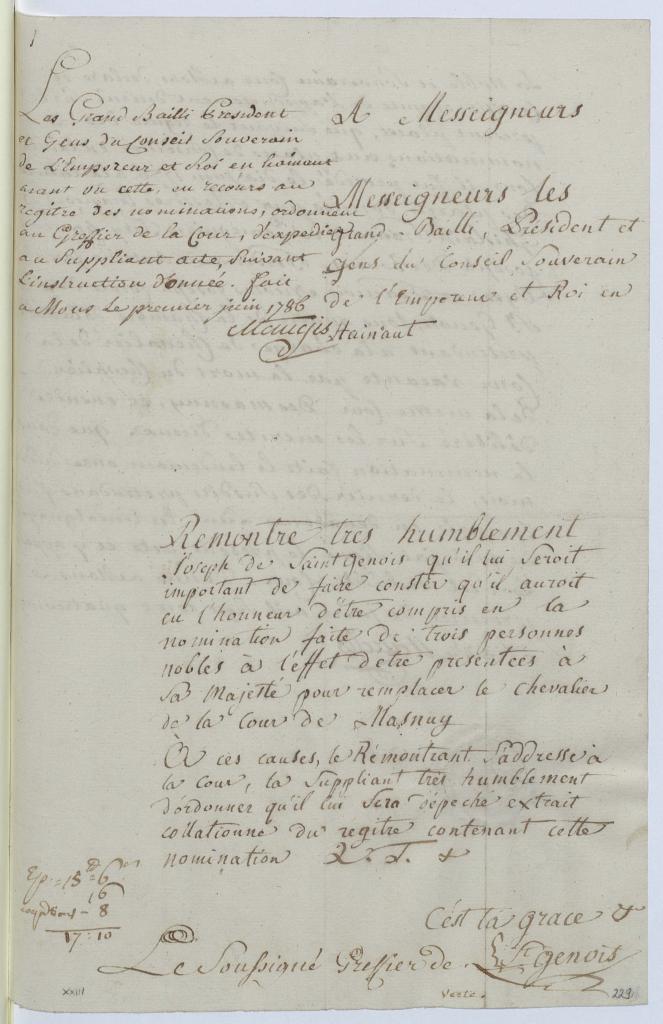 1
Les Grand Bailli President
et Gens du Conseil Souverain
de L'Empereur et Roi en hainaut
aiant vu cette, eu recours au
regitre des nominations, ordonnent
au Greffier de la Cour, d'expedier
au Suppliant acte, Suivant
L'instruction donnée. fait
a Mons Le premier juin 1786
Maugis
A Messeigneurs
Messeigneurs les
Grand-Bailli, President et
Gens du Conseil Souverain
de l'Empereur et Roi en
Hainaut
Remontre tres humblement
Joseph de Saint Genois qu'il lui Seroit
important de faire conster qu'il auroit
eu l'honneur d'être compris en la
nomination faite de trois personnes
nobles à l'effet d'etre presentées à
Sa Majesté pour remplacer le Chevalier
de la Cour de Masnuy
A ces causes, le Rémontrant S'addresse à
la Cour, la Suppliant très humblement
d'ordonner qu'il lui Sera dépeché extrait
collationné du régitre contenant cette
nomination Q. T. &
15 6
16
8
17:10
C'est la grace &
St genois
Le Soussigné Greffier de
verte.
XXIII
229